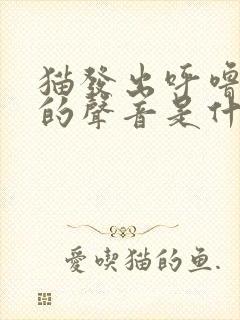 猫發出呼嚕
的聲音是什
愛喫猫的鱼.